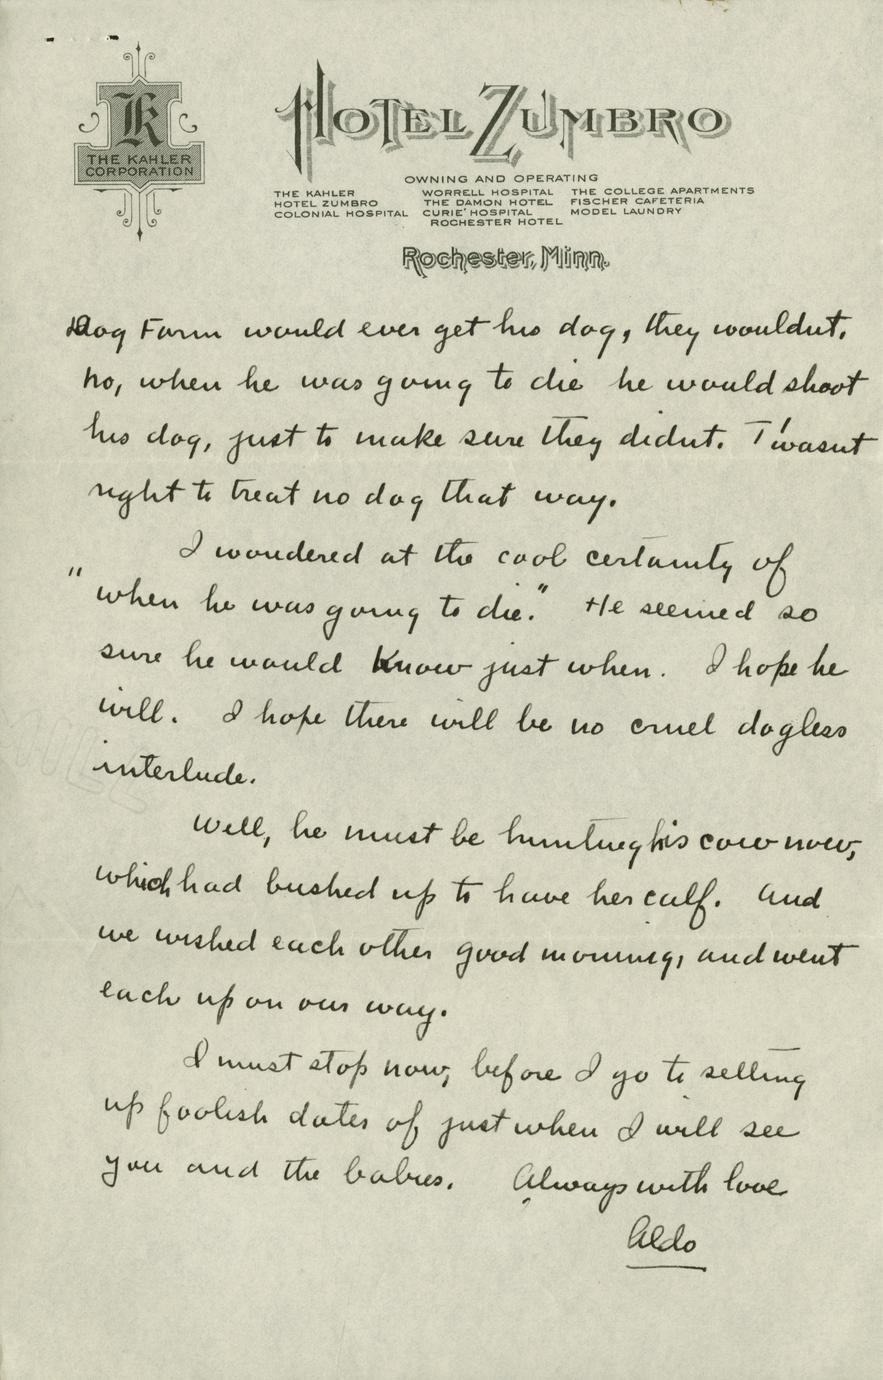 K
THE KAHLER
CORPORATION
HOTEL ZUMBRO
OWNING AND OPERATING
THE KAHLER WORRELL HOSPITAL THE COLLEGE APARTMENTS
HOTEL ZUMBRO THE DAMON HOTEL FISCHER CAFETERIA
COLONIAL HOSPITAL CURIE' HOSPITAL MODEL LAUNDRY
ROCHESTER HOTEL
Rochester, Minn.
Dog Farm would ever get his dog, they wouldnt.
No, when he was going to die he would shoot
his dog, just to make sure they didnt. T'wasnt
right to treat no dog that way.
I wondered at the cool certainty of
"when he was going to die." He seemed so
sure he would know just when. I hope he
will. I hope there will be no cruel dogless
interlude.
Well, he must be hunting his cow now,
which had bushed up to have her calf. And
we wished each other good morning, and went
each upon our way.
I must stop now, before I go to setting
up foolish dates of just when I will see
you and the babies. Always with love
Aldo